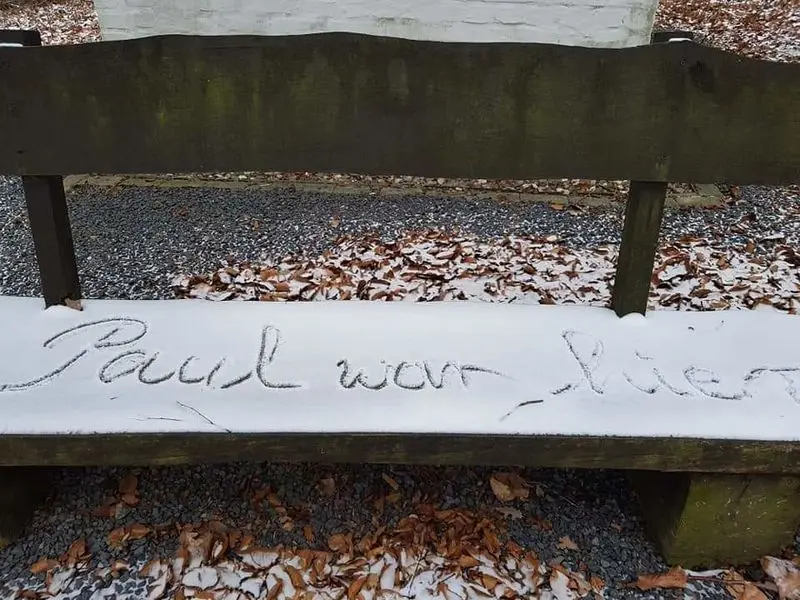 Paul war hier